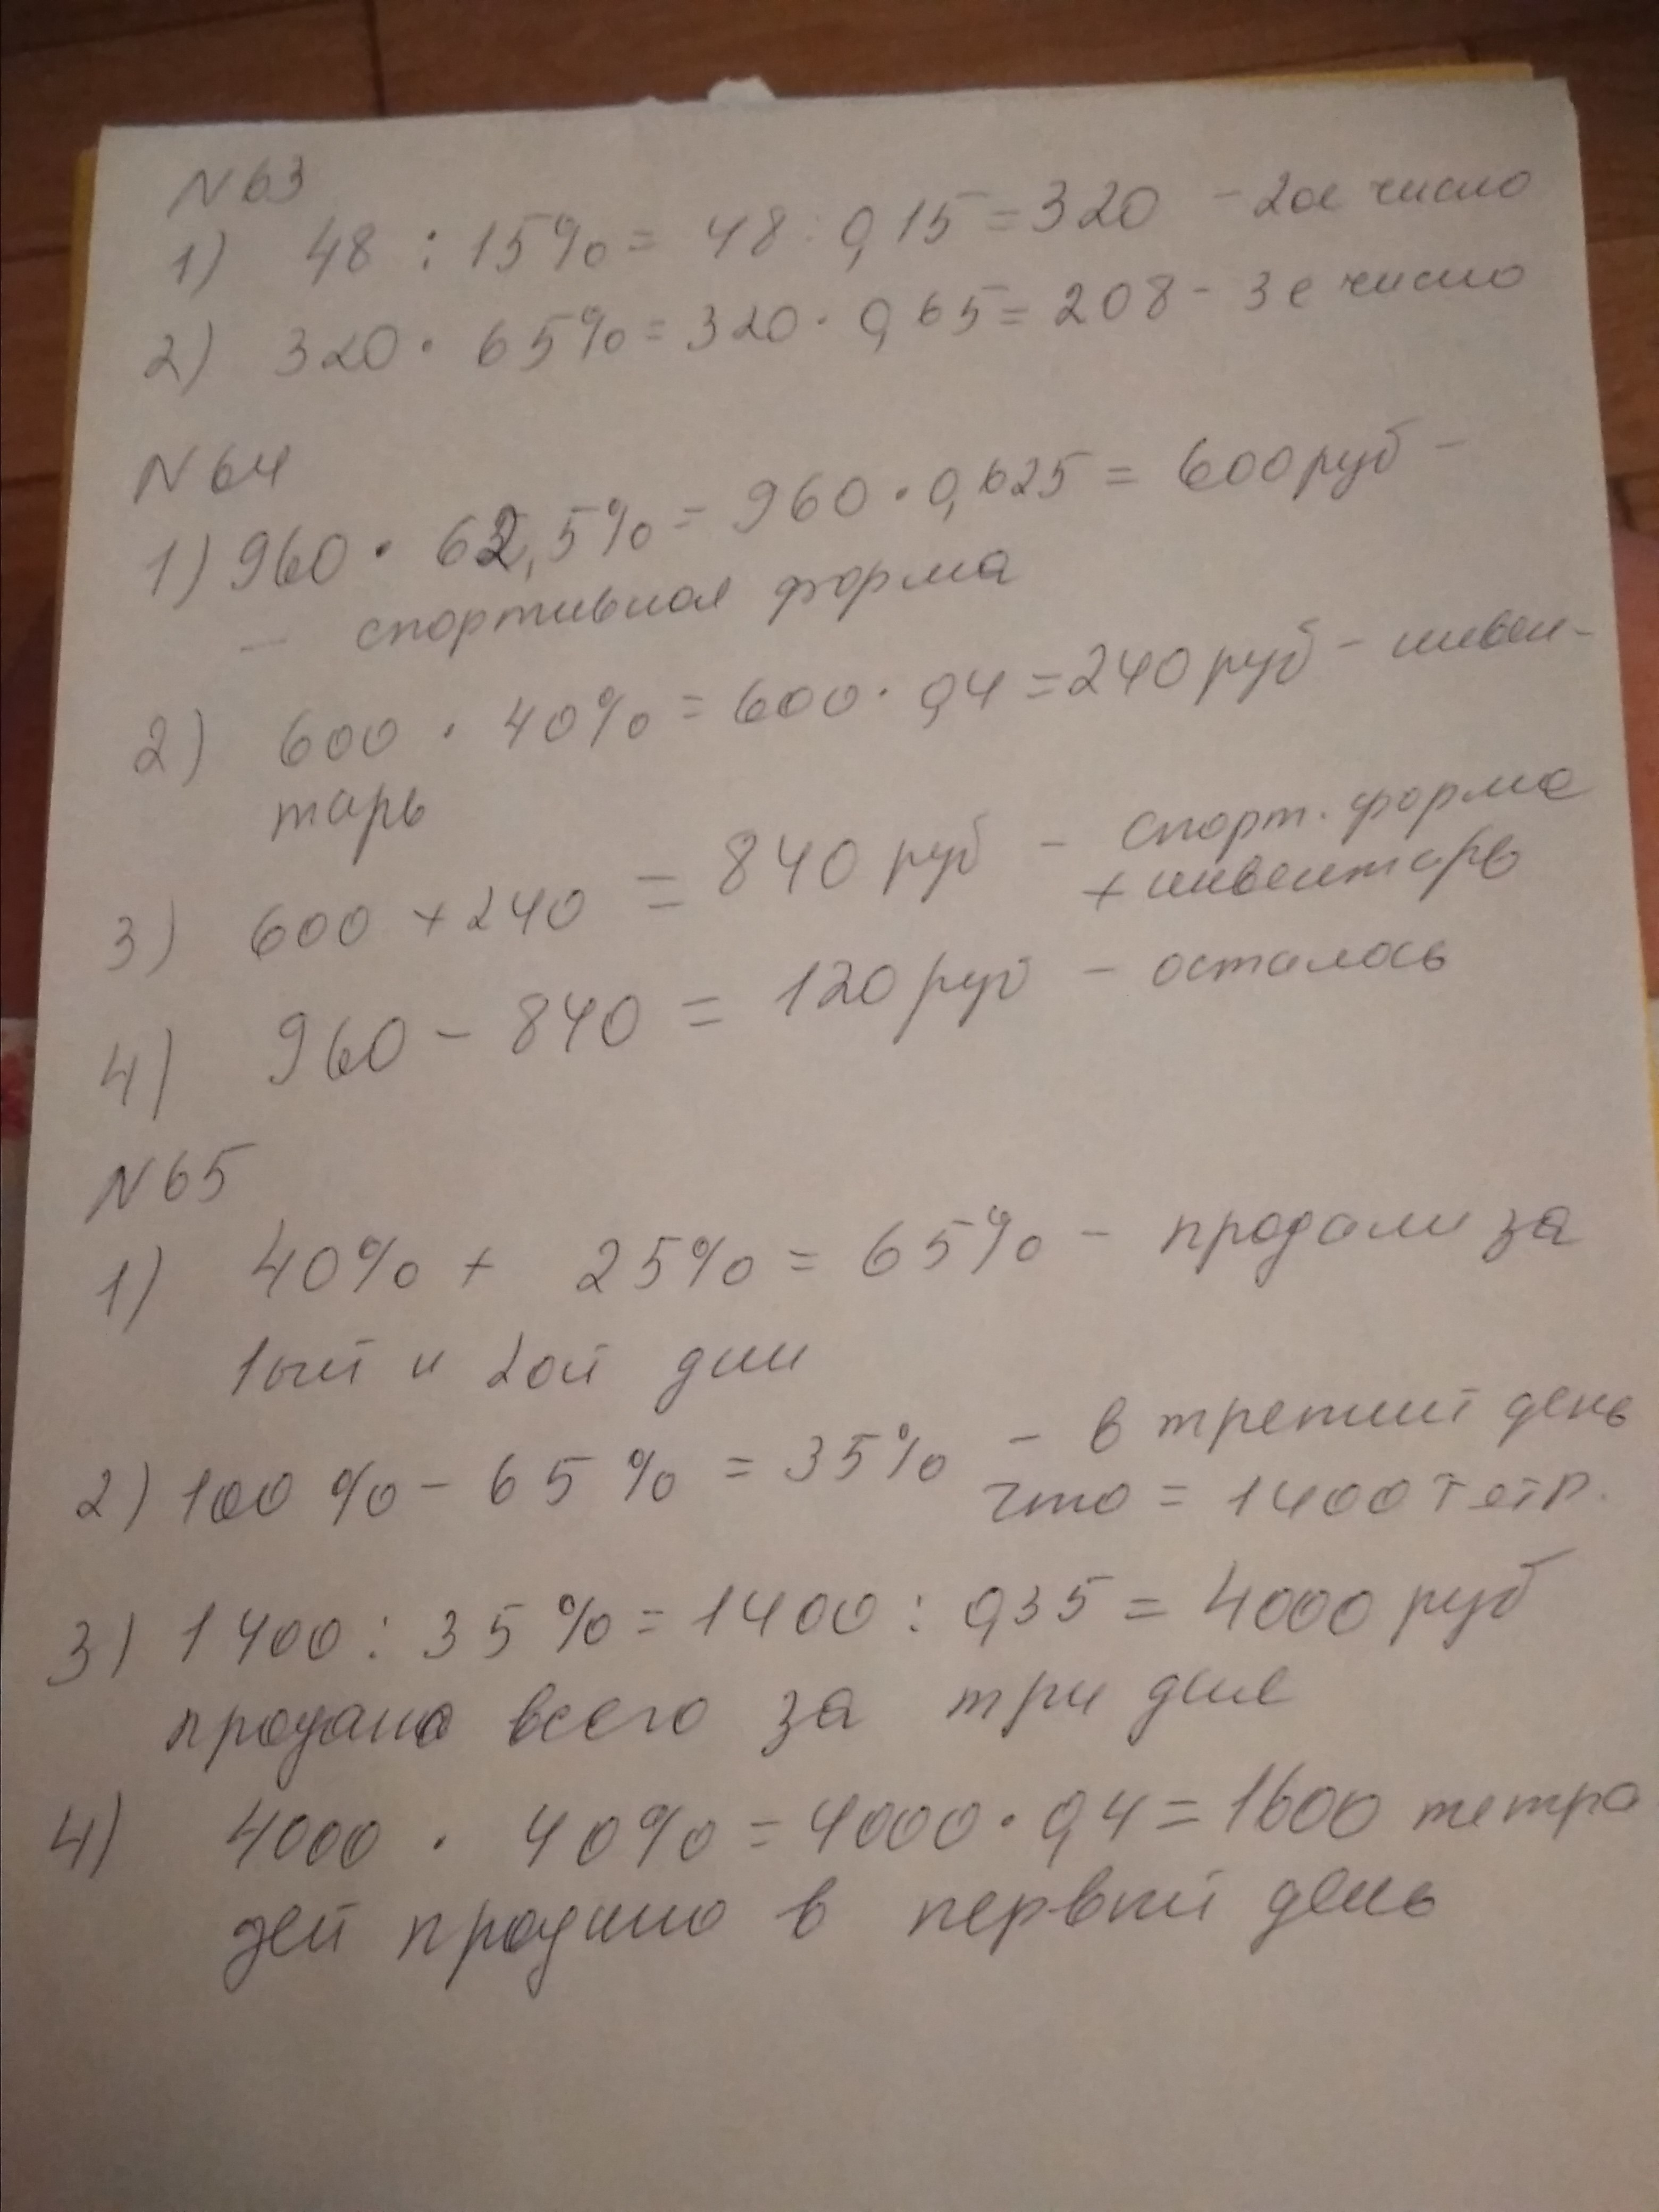 N63
1) 48 : 15% = 48 : 0,15 = 320 - 2ое число
2) 320 · 65% = 320 · 0,65 = 208 - 3е число
N64
1) 960 · 62,5% = 960 · 0,625 = 600 руб -
- спортивная форма
2) 600 · 40% = 600 · 0,4 = 240 руб - инвен-
тарь
3) 600 + 240 = 840 руб - спорт. форма
+ инвентарь
4) 960 - 840 = 120 руб - осталось
N65
1) 40% + 25% = 65% - продали за
1ый и 2ой дни
2) 100% - 65% = 35% - в третий день
что = 1400 тетр.
3) 1400 : 35% = 1400 : 0,35 = 4000 руб
продано всего за три дня
4) 4000 · 40% = 4000 · 0,4 = 1600 тетра
дей продано в первый день